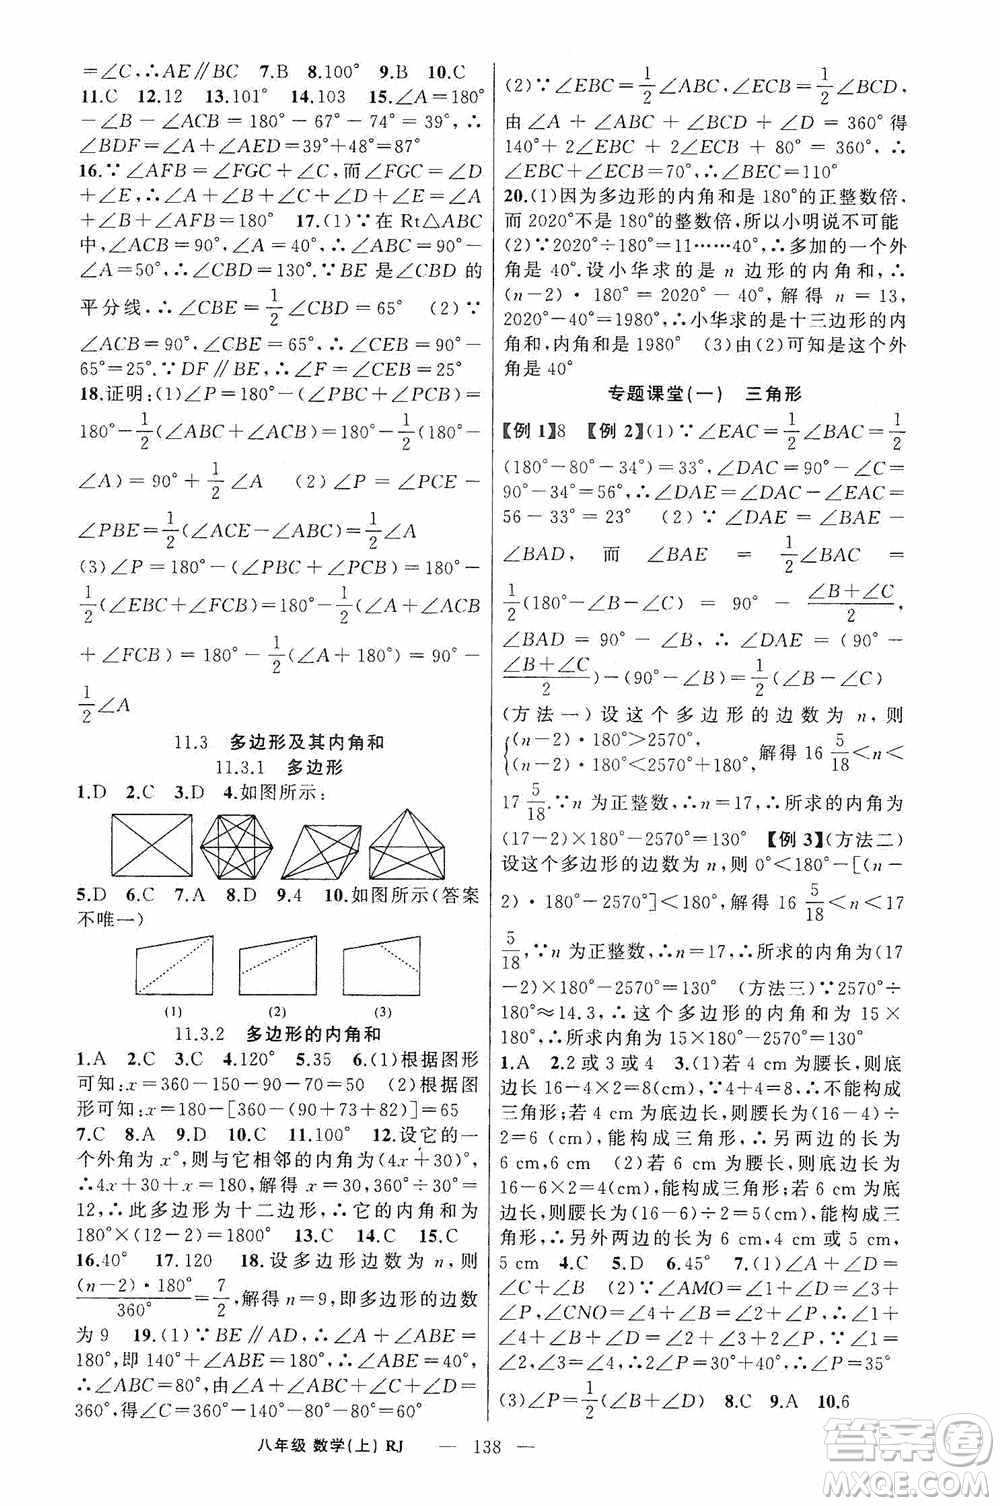 =∠C,∴AE∥BC　7.B　8.100°　9.B　10.C
11.C　12.12　13.101°　14.103　15.∠A=180°
-∠B-∠ACB=180°-67°-74°=39°,∴
∠BDF=∠A+∠AED=39°+48°=87°
16.∵∠AFB=∠FGC+∠C,而∠FGC=∠D
+∠E,∴∠A+∠B+∠C+∠D+∠E=∠A
+∠B+∠AFB=180°　17.(1)∵在Rt△ABC
中,∠ACB=90°,∠A=40°,∴∠ABC=90°-
∠A=50°,∴∠CBD=130°.∵BE是∠CBD的
平分线,∴∠CBE=1/2∠CBD=65°　(2)∵
∠ACB=90°,∠CBE=65°,∴∠CEB=90°-
65°=25°.∵DF∥BE,∴∠F=∠CEB=25°
18.证明:(1)∠P=180°-(∠PBC+∠PCB)=
180°-1/2(∠ABC+∠ACB)=180°-1/2(180°-
∠A)=90°+1/2∠A　(2)∠P=∠PCE-
∠PBE=1/2(∠ACE-∠ABC)=1/2∠A
(3)∠P=180°-(∠PBC+∠PCB)=180°-
1/2(∠EBC+∠FCB)=180°-1/2(∠A+∠ACB
+∠FCB)=180°-1/2(∠A+180°)=90°-
1/2∠A
11.3　多边形及其内角和
11.3.1　多边形
1.D　2.C　3.D　4.如图所示:
5.D　6.C　7.A　8.D　9.4　10.如图所示(答案
不唯一)
(1)　(2)　(3)
11.3.2　多边形的内角和
1.A　2.C　3.C　4.120°　5.35　6.(1)根据图形
可知:x=360-150-90-70=50　(2)根据图
形可知:x=180-[360-(90+73+82)]=65
7.C　8.A　9.D　10.C　11.100°　12.设它的一
个外角为x°,则与它相邻的内角为(4x+30)°,
∴4x+30+x=180,解得x=30,360°÷30°=
12,∴此多边形为十二边形,∴它的内角和为
180°×(12-2)=1800°　13.C　14.C　15.C
16.40°　17.120　18.设多边形边数为n,则
(n-2)·180°/360°=7/2,解得n=9,即多边形的边数
为9　19.(1)∵BE∥AD,∴∠A+∠ABE=
180°,即140°+∠ABE=180°,∴∠ABE=40°,
∴∠ABC=80°,由∠A+∠ABC+∠C+∠D=
360°,得∠C=360°-140°-80°-80°=60°
(2)∵∠EBC=1/2∠ABC,∠ECB=1/2∠BCD,
由∠A+∠ABC+∠BCD+∠D=360°得
140°+2∠EBC+2∠ECB+80°=360°,∴
∠EBC+∠ECB=70°,∴∠BEC=110°
20.(1)因为多边形的内角和是180°的正整数倍,
而2020°不是180°的整数倍,所以小明说不可能
(2)∵2020°÷180°=11……40°,∴多加的一个外
角是40°.设小华求的是n边形的内角和,∴
(n-2)·180°=2020°-40°,解得n=13,
2020°-40°=1980°,∴小华求的是十三边形的内
角和,内角和是1980°　(3)由(2)可知是这个外
角是40°
专题课堂(一)　三角形
【例1】8　【例2】(1)∵∠EAC=1/2∠BAC=1/2
(180°-80°-34°)=33°,∠DAC=90°-∠C=
90°-34°=56°,∴∠DAE=∠DAC-∠EAC=
56-33°=23°　(2)∵∠DAE=∠BAE-
∠BAD,而∠BAE=1/2∠BAC=
1/2(180°-∠B-∠C)=90°-(∠B+∠C)/2,
∠BAD=90°-∠B,∴∠DAE=(90°-
(∠B+∠C)/2)-(90°-∠B)=1/2(∠B-∠C)
(方法一)设这个多边形的边数为n,则
{(n-2)·180°>2570°,(n-3)·180°<2570°,解得16 5/18<n<
17 5/18.∵n为正整数,∴n=17,∴所求的内角为
(17-2)×180°-2570°=130°　【例3】(方法二)
设这个多边形的边数为n,则0°<180°-[(n-
2)·180°-2570°]<180°,解得16 5/18<n<17
5/18,∵n为正整数,∴n=17,∴所求的内角为(17
-2)×180°-2570°=130°　(方法三)∵2570°÷
180°≈14.3,∴这个多边形的内角和为15×
180°,∴所求内角为15×180°-2570°=130°
1.A　2.2或3或4　3.(1)若4 cm为腰长,则底
边长16-4×2=8(cm),∵4+4=8,∴不能构成
三角形;若4 cm为底边长,则腰长为(16-4)÷
2=6(cm),能构成三角形,∴另两边的长为
6 cm,6 cm　(2)若6 cm为腰长,则底边长为
16-6×2=4(cm),能构成三角形;若6 cm为底
边长,则腰长为(16-6)÷2=5(cm),能构成三角
形,∴另外两边的长为6 cm,4 cm或5 cm,
5 cm　4.C　5.D　6.45°　7.(1)∠A+∠D=
∠C+∠B　(2)∵∠AMO=∠1+∠D=∠3+
∠P,∠CNO=∠4+∠B=∠2+∠P,∴∠1
+∠D+∠4+∠B=∠3+∠P+∠2+∠P.∵∠1
=∠2,∠3=∠4,∴2∠P=∠B+∠D,∴∠P=35°
(3)∠P=1/2(∠B+∠D)　8.C　9.A　10.6
八年级 数学(上) RJ　— 138 —
答案圈
MXQE.COM